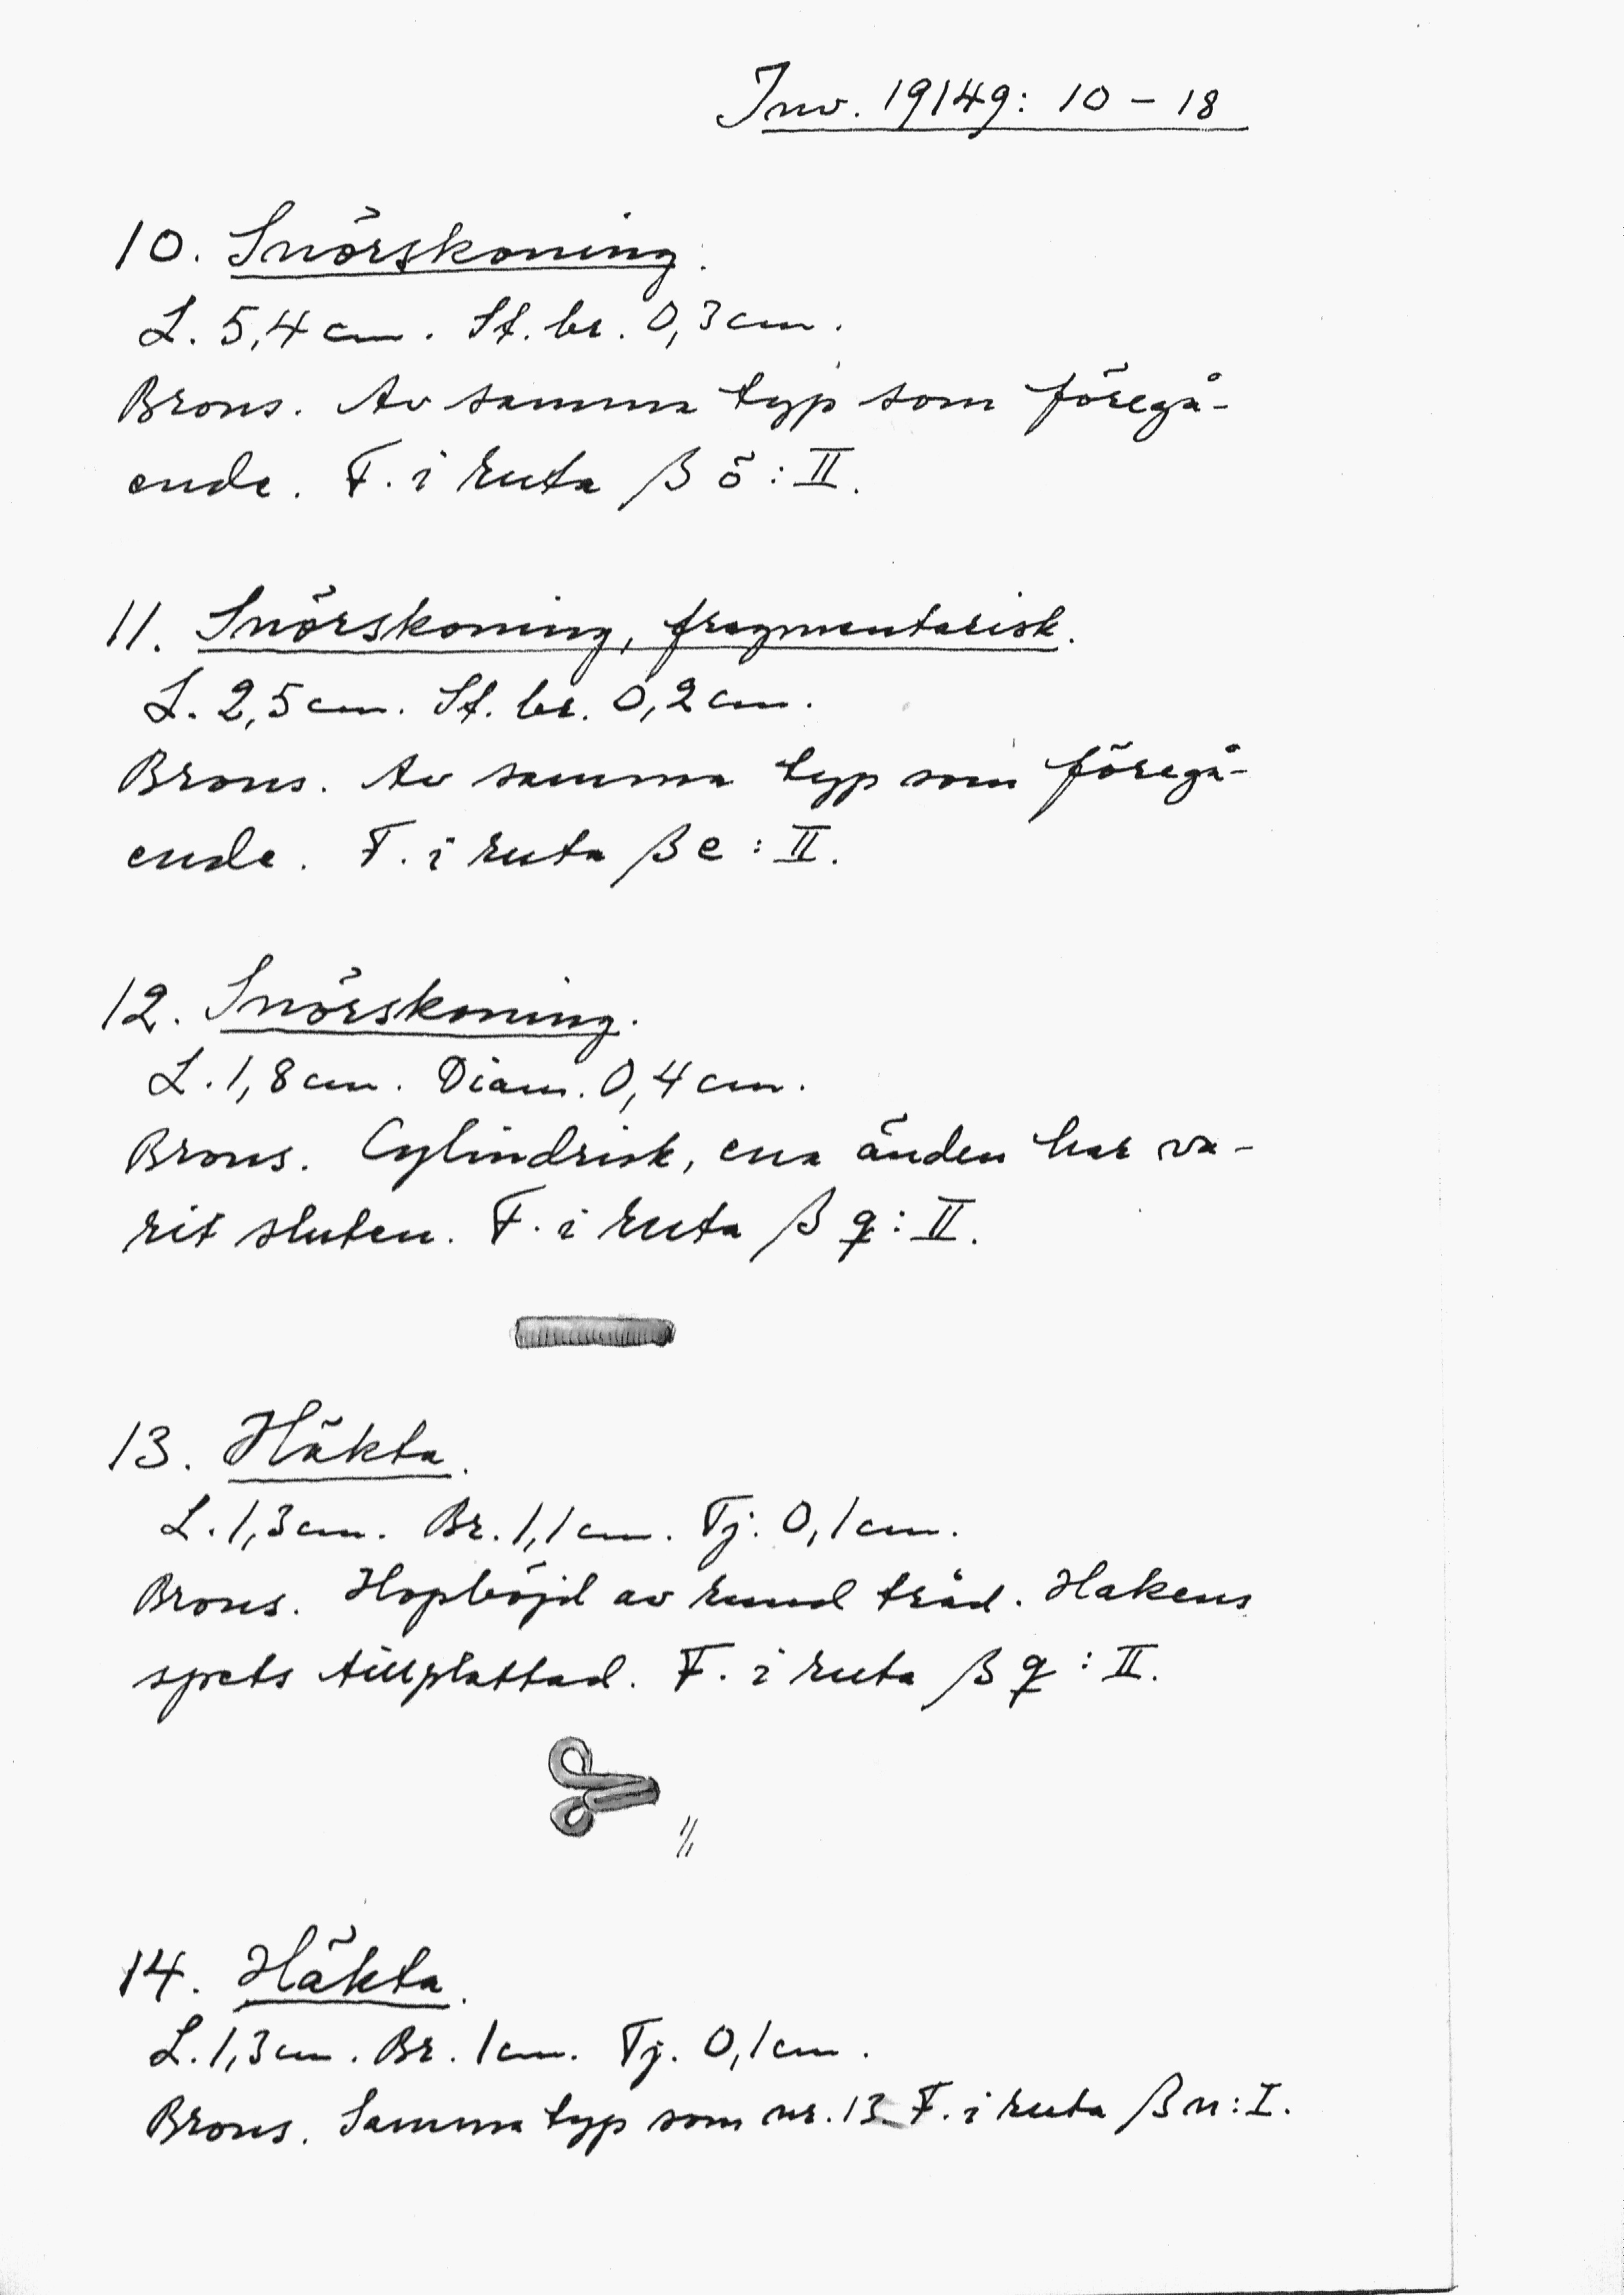 Inv. 19149: 10 – 18
10. Snörskoning.
L. 5,4 cm. St. br. 0,3 cm.
Brons. Av samma typ som föregå-
ende. F. i ruta β ö : II.
11. Snörskoning, fragmentarisk.
L. 2,5 cm. St. br. 0,2 cm.
Brons. Av samma typ som föregå-
ende. F. i ruta β e : II.
12. Snörskoning.
L. 1,8 cm. Diam. 0,4 cm.
Brons. Cylindrisk, ena änden har va-
rit sluten. F. i ruta β q : II.
13. Häkta.
L. 1,3 cm. Br. 1,1 cm. Tj. 0,1 cm.
Brons. Hopböjd av rund tråd. Hakens
spets tillplattad. F. i ruta β q : II.
1/1
14. Häkta.
L. 1,3 cm. Br. 1 cm. Tj. 0,1 cm.
Brons. Samma typ som nr. 13. F. i ruta β n : I.